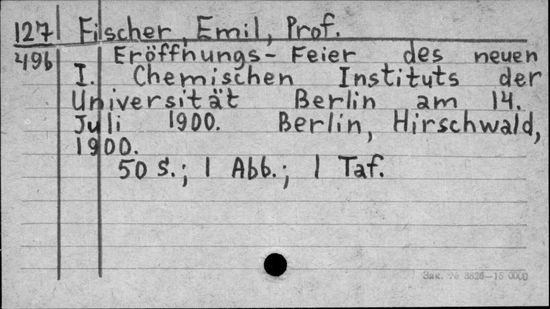 127 Fischer, Emil, Prof.
496 Eröffnungs-Feier des neuen
I. Chemischen Instituts der
Universität Berlin am 14.
Juli 1900. Berlin, Hirschwald,
1900.
50 S.; 1 Abb.; 1 Taf.